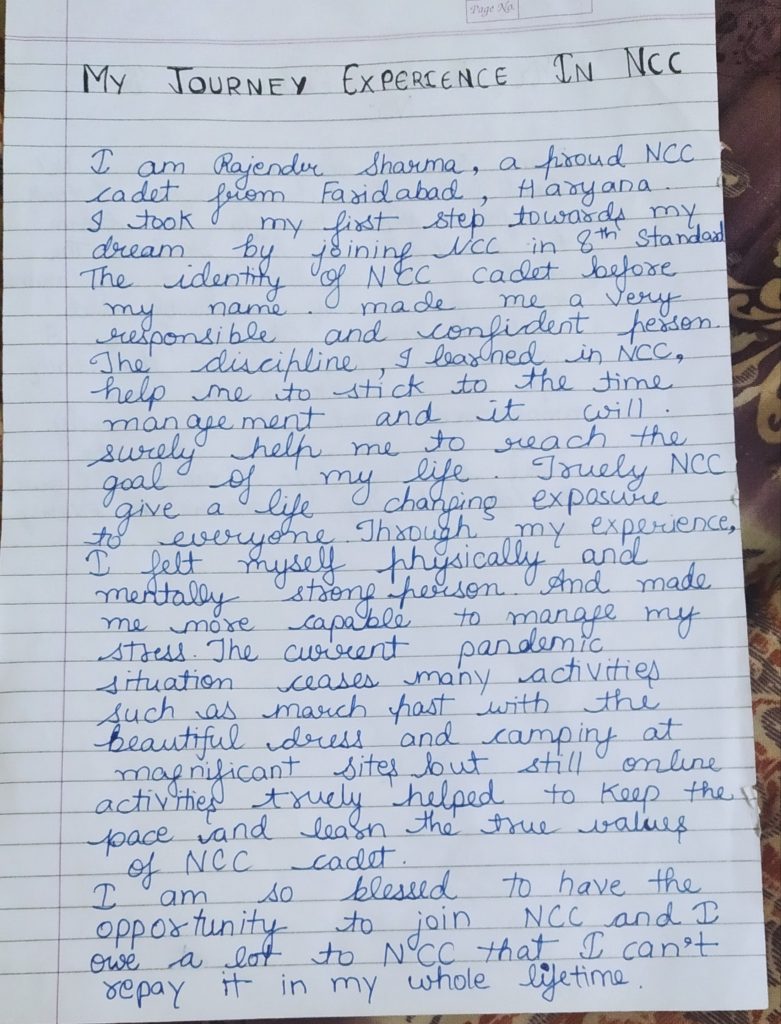 Page No.
MY JOURNEY EXPERIENCE IN NCC
I am Rajender Sharma, a proud NCC
cadet from Faridabad, Haryana.
I took my first step towards my
dream by joining NCC in 8th Standard
The identity of NCC cadet before
my name. made me a very
responsible and confident person.
The discipline, I learned in NCC,
help me to stick to the time
management and it will.
surely help me to reach the
goal of my life. Truely NCC
give a life changing exposure
to everyone. Through my experience,
I felt myself physically and
mentally strong person. And made
me more capable to manage my
stress. The current pandemic
situation ceases many activities
such as march past with the
beautiful dress and camping at
magnificant sites but still online
activities truely helped to keep the
pace and learn the true values
of NCC cadet.
I am so blessed to have the
opportunity to join NCC and I
owe a lot to NCC that I can't
repay it in my whole lifetime.